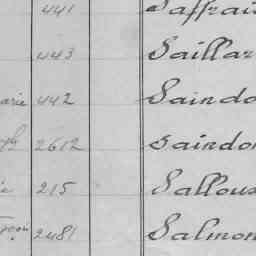 441 Saffrai
443 Saillar
arie 442 Saindo
ph 2612 Saindon
ie 215 Sallous
2481 Salmon